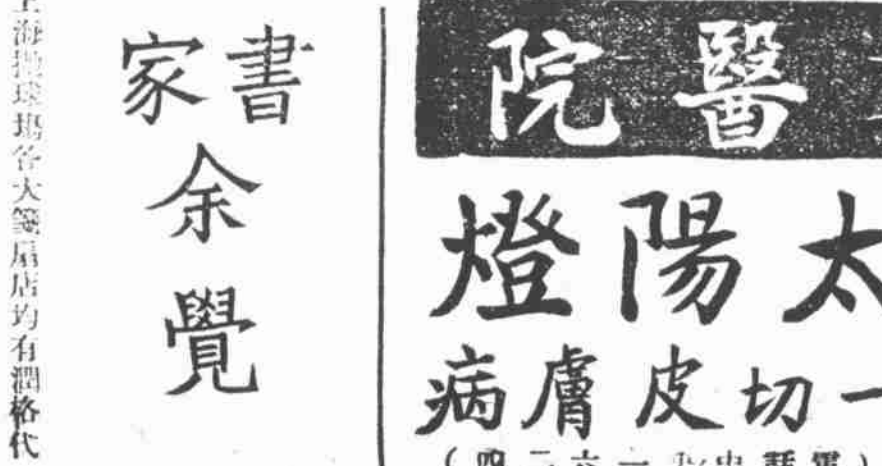 醫院
太陽燈
一切皮膚病
電話
書家
余覺
上海拋球場各大箋扇店均有潤格代